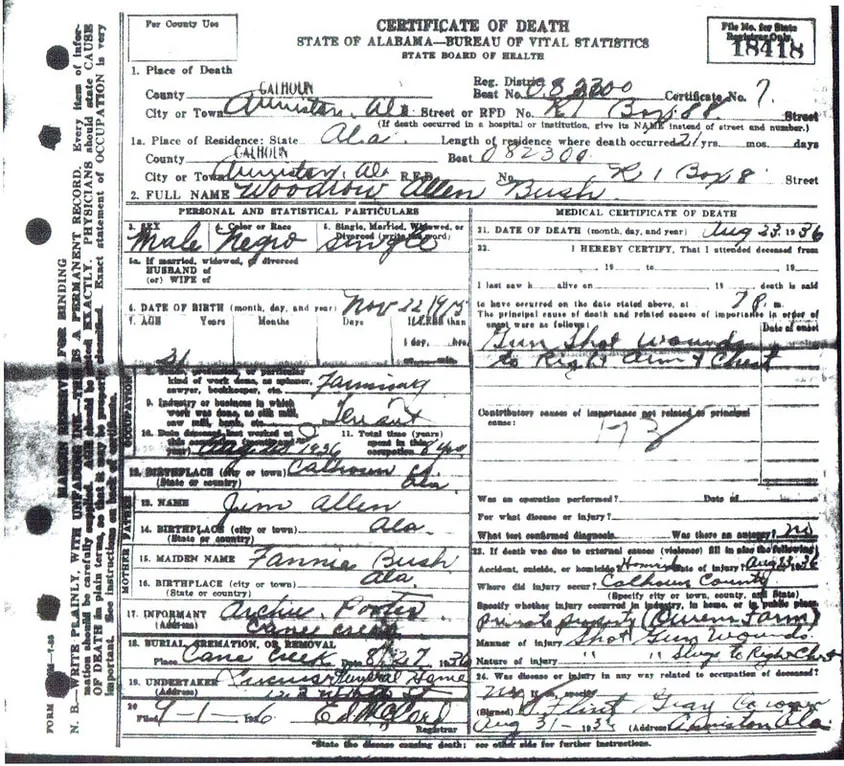 For County Use
CERTIFICATE OF DEATH
STATE OF ALABAMA—BUREAU OF VITAL STATISTICS
STATE BOARD OF HEALTH
File No. for State
Registrar Only
18418
1. Place of Death
County CALHOUN
Reg. District
Beat No. 082300 Certificate No. 7.
City or Town Anniston, Ala Street or RFD No. R1 Box 88 Street
(If death occurred in a hospital or institution, give its NAME instead of street and number.)
1a. Place of Residence: State Ala. Length of residence where death occurred 21 yrs. mos. days
County CALHOUN Beat 082300
City or Town Anniston, Ala R.F.D. No. R 1 Box 8 Street
2. FULL NAME Woodrow Allen Bush
PERSONAL AND STATISTICAL PARTICULARS
3. SEX 4. Color or Race 5. Single, Married, Widowed, or
Divorced (write the word)
Male Negro Single
5a. If married, widowed, or divorced
HUSBAND of
(or) WIFE of
6. DATE OF BIRTH (month, day, and year) Nov 22 1915
7. AGE Years Months Days If LESS than
1 day, hrs.
or min.
21
kind of work done, as spinner,
sawyer, bookkeeper, etc. Farming
9. Industry or business in which
work was done, as silk mill,
saw mill, bank, etc. Tenant
10. Date deceased last worked at
this occupation 1936
11. Total time (years)
spent in this
occupation 8 yrs
12. BIRTHPLACE (city or town) Calhoun Co.
(State or country) Ala
FATHER
13. NAME Jim Allen
14. BIRTHPLACE (city or town) Ala.
(State or country)
MOTHER
15. MAIDEN NAME Fannie Bush
16. BIRTHPLACE (city or town) Ala.
(State or country)
17. INFORMANT Archie Porter
(Address) Cane Creek
18. BURIAL, CREMATION, OR REMOVAL
Place Cane Creek Date 8/27 1936
19. UNDERTAKER Funeral Home
(Address)
20
Filed 9-1-1936
Registrar
MEDICAL CERTIFICATE OF DEATH
21. DATE OF DEATH (month, day, and year) Aug 23. 1936
22. I HEREBY CERTIFY, That I attended deceased from
, 19 to , 19
I last saw h alive on , 19 death is said
to have occurred on the date stated above, at 7 P. m.
The principal cause of death and related causes of importance in order of
onset were as follows: Date of onset
Gun Shot Wounds
to Right Arm & Chest
Contributory causes of importance not related to principal
cause:
173
Was an operation performed? Date of
For what disease or injury?
What test confirmed diagnosis. Was there an autopsy? no
23. If death was due to external causes (violence) fill in also the following
Accident, suicide, or homicide? Date of injury? Aug 23 1936
Where did injury occur? Calhoun County
(Specify city or town, county, and State)
Specify whether injury occurred in industry, in home, or in public place.
Private property (Owens Farm)
Manner of injury Shot Gun Wounds.
Nature of injury " " Slugs to Right Chest
24. Was disease or injury in any way related to occupation of deceased?
(Signed) Flint Gray Coroner
Aug 31-1936 (Address) Anniston Ala.
*State the disease causing death; see other side for further instructions.
MARGIN RESERVED FOR BINDING
N. B.—WRITE PLAINLY, WITH UNFADING INK—THIS IS A PERMANENT RECORD. Every item of information should be carefully supplied. AGE should be stated EXACTLY. PHYSICIANS should state CAUSE OF DEATH in plain terms, so that it may be properly classified. Exact statement of OCCUPATION is very important. See instructions on back of certificate.
OCCUPATION